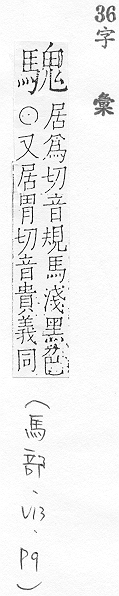 36字彙
騩
居爲切音規馬淺黑色
○又居胃切音貴義同
(馬部、V13、P9)